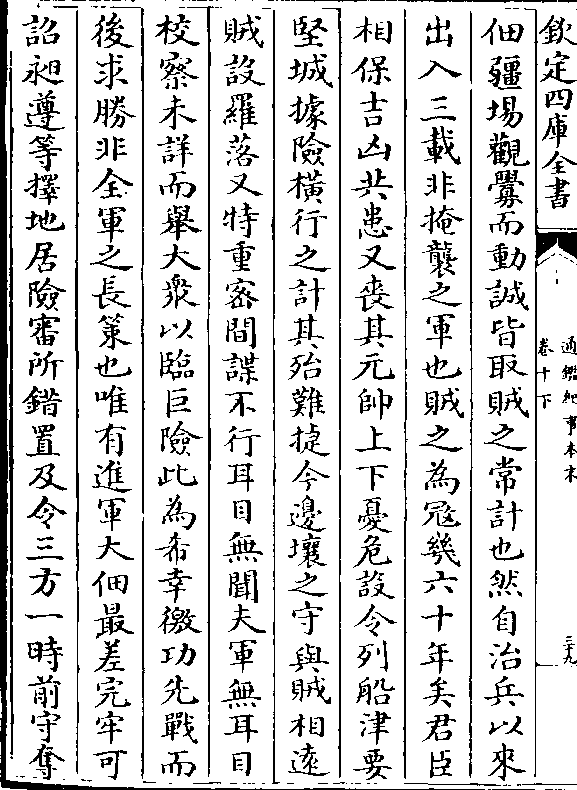 欽定四庫全書
通鑑紀事本末
卷十下
三九
佃疆場觀釁而動誠皆取賊之常計也然自治兵以來
出入三載非掩襲之軍也賊之為冦幾六十年矣君臣
相保吉凶共患又喪其元帥上下憂危設令列船津要
堅城據險橫行之計其殆難捷今邊壤之守與賊相逺
賊設羅落又特重宻間諜不行耳目無聞夫軍無耳目
校察未詳而舉大衆以臨巨險此為希幸徼功先戰而
後求勝非全軍之長策也唯有進軍大佃最差完牢可
詔昶遵等擇地居險審所錯置及令三方一時前守奪